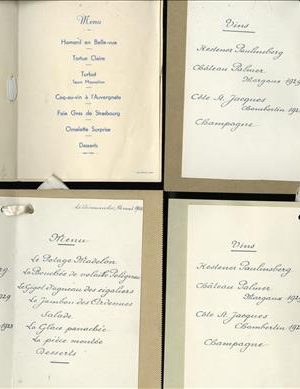 Menu
Homard en Belle-vue
Tortue Claire
Turbot
Coq-au-vin à l'Auvergnate
Foie Gras de Strasbourg
Omelette Surprise
Desserts
Vins
Kestener Paulinsberg
Château Palmer
Margaux 1929
Côte St. Jacques
Chambertin 192
Champagne
Menu
Le Potage Madelon
La Bouchée de volaille Polignac
Le Gigot d'agneau des égaliers
Le Jambon des Ardennes
Salade
La Glace panachée
La pièce montée
Desserts
Vins
Kestener Paulinsberg
Château Palmer
Margaux 192
Côte St. Jacques
Chambertin 192
Champagne